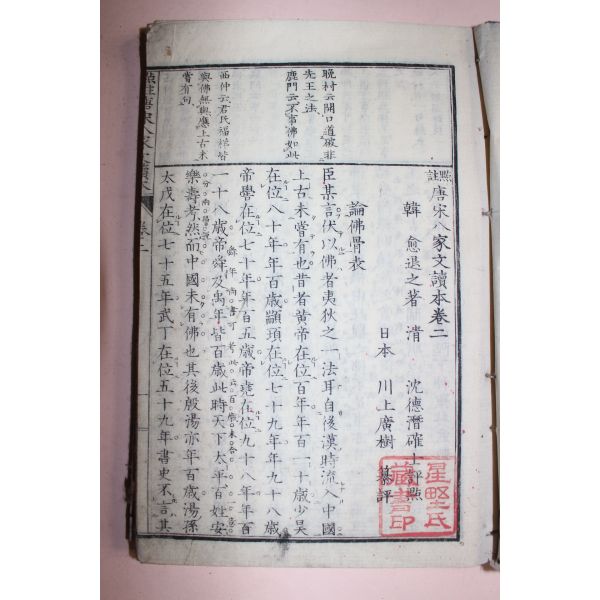 點註唐宋八家文讀本卷二
韓 愈退之著 清 沈德潛確士評點
日本 川上廣樹 纂評
論佛骨表
臣某言伏以佛者夷狄之一法耳自後漢時流入中國
上古未嘗有也昔者黃帝在位百年年百一十歲少昊
在位八十年年百歲顓頊在位七十九年年九十八歲
帝嚳在位七十年年百五歲帝堯在位九十八年年百
一十八歲帝舜及禹年皆百歲此時天下太平百姓安
樂壽考然而中國未有佛也其後殷湯亦年百歲湯孫
太戊在位七十五年武丁在位五十九年書史不言其
晚村云開口道破非
先王之法
鹿門云不事佛如此
西仲云君民福祚皆
與佛無與應上古未
嘗有句
卷二
星野氏
藏書印